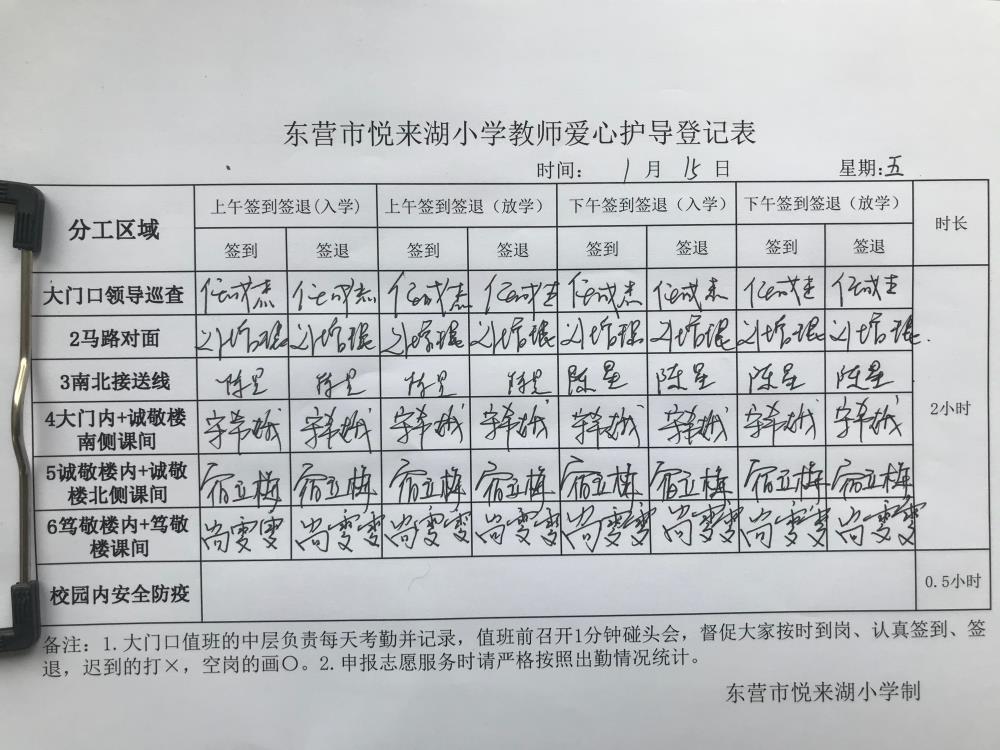 东营市悦来湖小学教师爱心护导登记表
时间： 1 月 15 日 星期:五
分工区域 上午签到签退(入学) 上午签到签退（放学） 下午签到签退（入学） 下午签到签退（放学） 时长
签到 签退 签到 签退 签到 签退 签到 签退
大门口领导巡查 任成杰 任成杰 任成杰 任成杰 任成杰 任成杰 任成杰 任成杰
2马路对面
3南北接送线 陈星 陈星 陈星 陈星 陈星 陈星 陈星 陈星
2小时
4大门内+诚敬楼
南侧课间
5诚敬楼内+诚敬
楼北侧课间 宿立梅 宿立梅 宿立梅 宿立梅 宿立梅 宿立梅 宿立梅 宿立梅
6笃敬楼内+笃敬
楼课间 尚雯雯 尚雯雯 尚雯雯 尚雯雯 尚雯雯 尚雯雯 尚雯雯 尚雯雯
校园内安全防疫 0.5小时
备注：1.大门口值班的中层负责每天考勤并记录，值班前召开1分钟碰头会，督促大家按时到岗、认真签到、签
退，迟到的打×，空岗的画〇。2.申报志愿服务时请严格按照出勤情况统计。
东营市悦来湖小学制